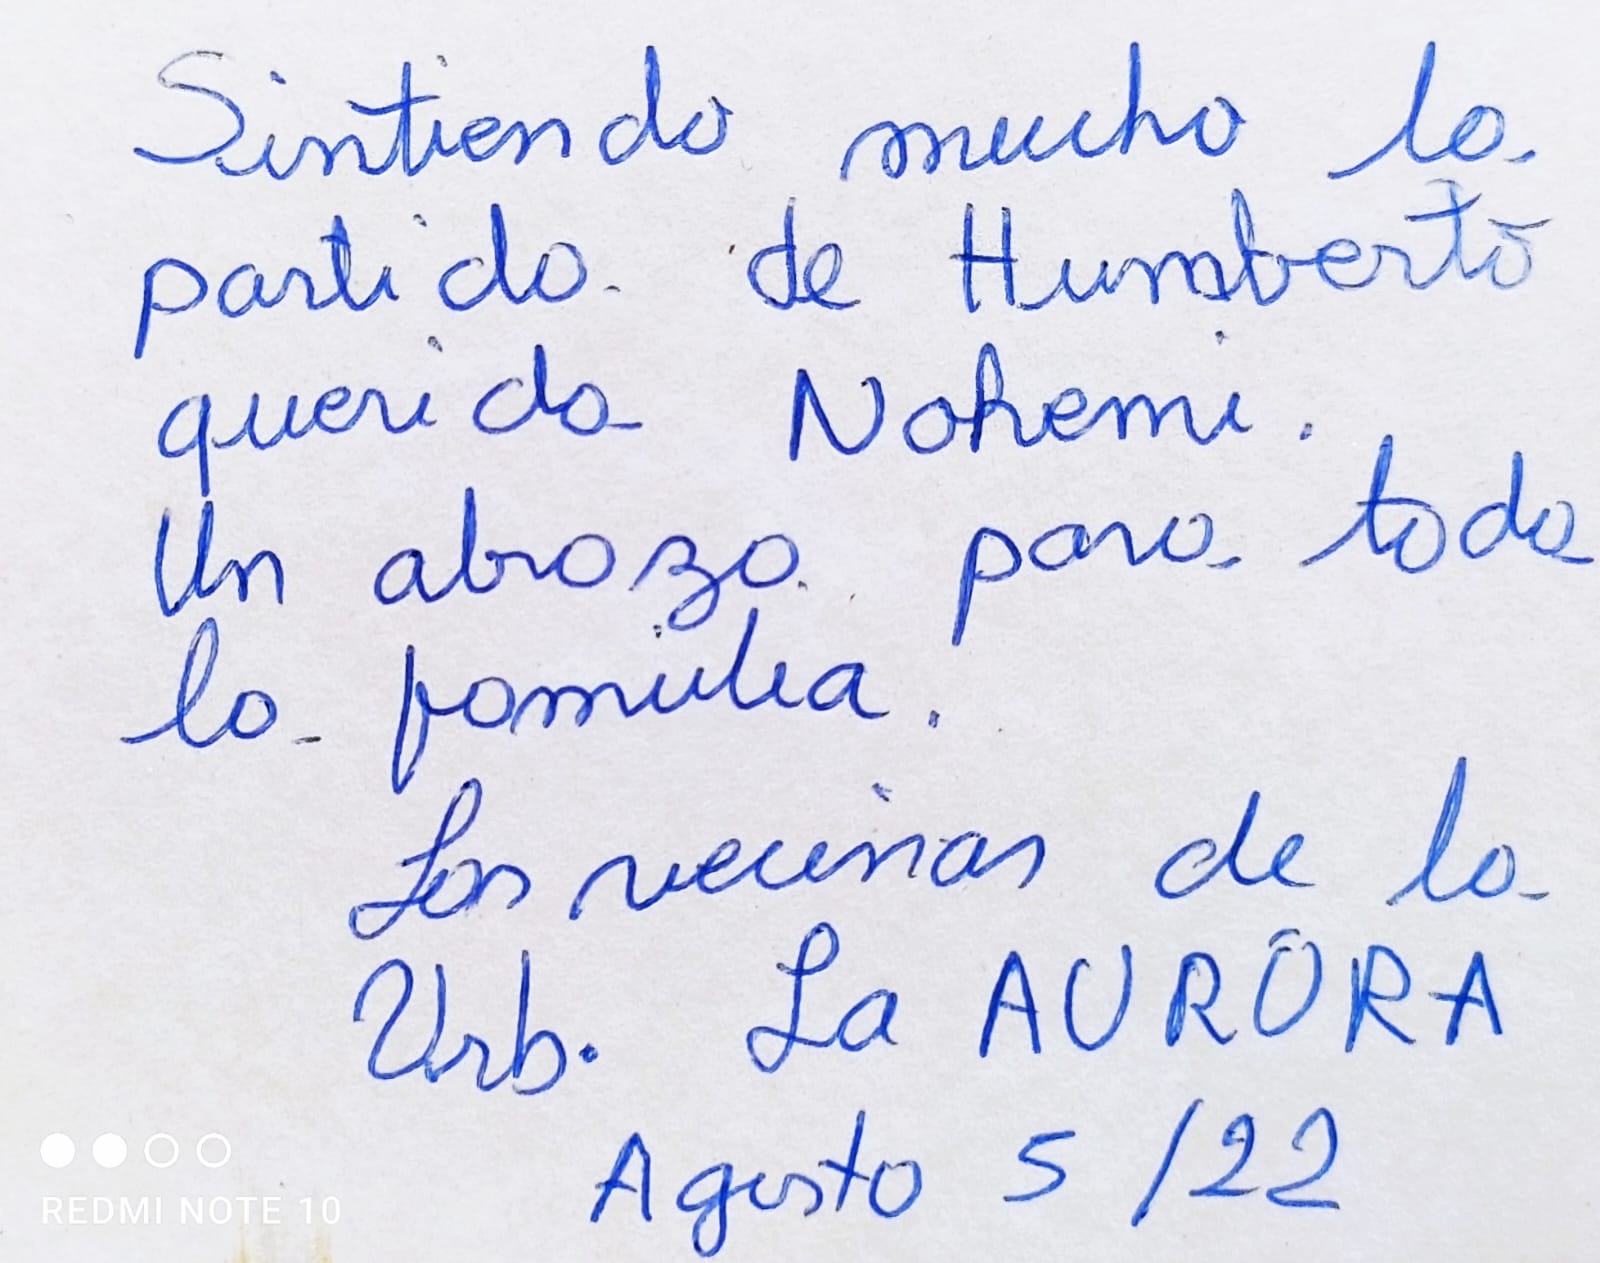 Sintiendo mucho la
partida de Humberto
querida Nohemi.
Un abrazo para toda
la familia.
Las vecinas de la
Urb. La AURORA
Agosto 5/22
REDMI NOTE 10